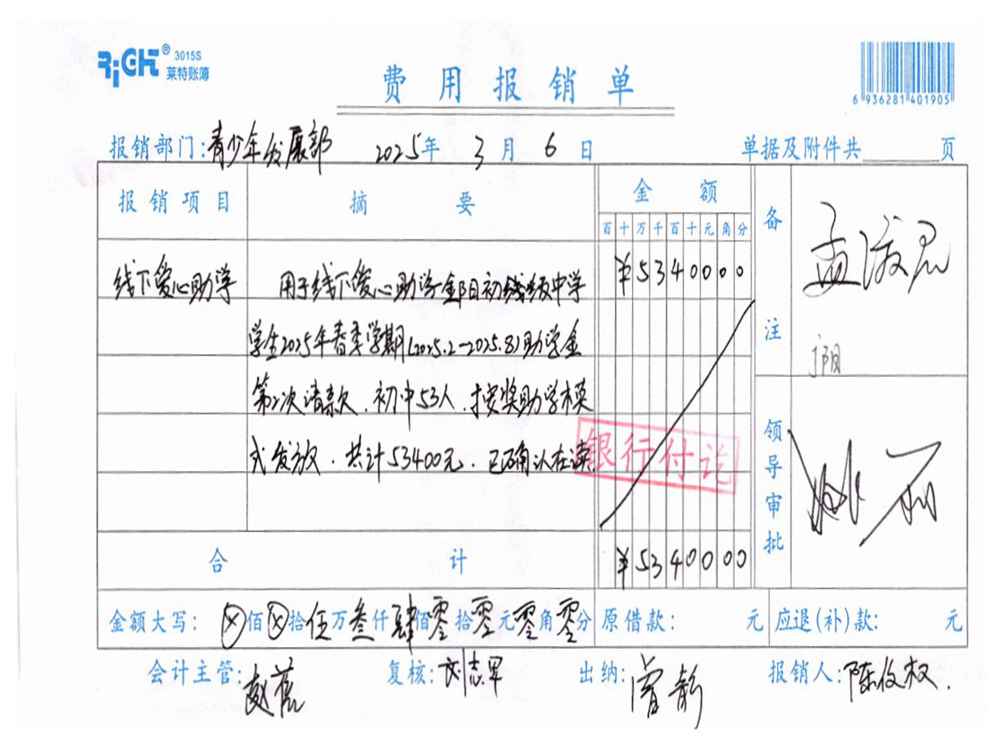 RiGHT® 3015S
莱特账簿
费用报销单
6 936281 401905
报销部门:青少年发展部 2025年 3月 6日 单据及附件共 页
报销项目 摘要 金额 备注
百十万千百十元角分
线下爱心助学 用于线下爱心助学 初级中学 ¥5340000
学生2025年春季学期(2025.2-2025.8)助学金
第2次请款、初中53人、按奖助学模
式发放.共计53400元.已确认在读.
银行付讫
领导审批
合计 ¥5340000
金额大写: ⊗佰⊗拾伍万叁仟肆佰零拾零元零角零分 原借款: 元 应退(补)款: 元
会计主管: 复核:刘志军 出纳:曾静 报销人:陈俊权.